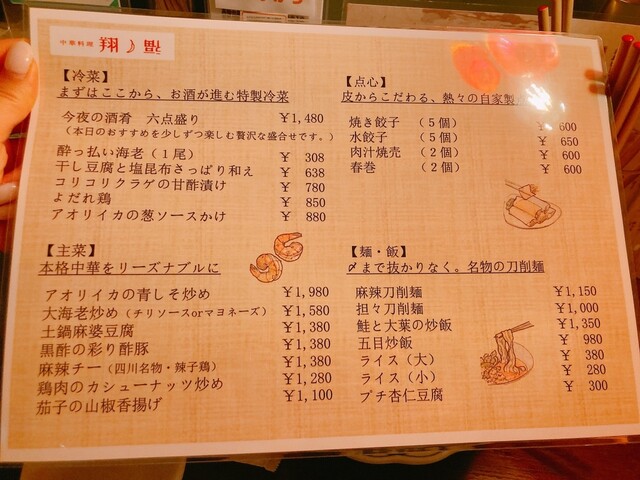 中華料理 翔
【冷菜】
まずはここから、お酒が進む特製冷菜
今夜の酒肴 六点盛り ¥1,480
（本日のおすすめを少しずつ楽しむ贅沢な盛合せです。）
酔っ払い海老（1尾） ¥ 308
干し豆腐と塩昆布さっぱり和え ¥ 638
コリコリクラゲの甘酢漬け ¥ 780
よだれ鶏 ¥ 850
アオリイカの葱ソースかけ ¥ 880
【点心】
皮からこだわる、熱々の自家製
焼き餃子 （5個） ¥ 600
水餃子 （5個） ¥ 650
肉汁焼売 （2個） ¥ 600
春巻 （2個） ¥ 600
【主菜】
本格中華をリーズナブルに
アオリイカの青しそ炒め ¥1,980
大海老炒め（チリソースorマヨネーズ） ¥1,580
土鍋麻婆豆腐 ¥1,380
黒酢の彩り酢豚 ¥1,380
麻辣チー（四川名物・辣子鶏） ¥1,380
鶏肉のカシューナッツ炒め ¥1,280
茄子の山椒香揚げ ¥1,100
【麺・飯】
〆まで抜かりなく。名物の刀削麺
麻辣刀削麺 ¥1,150
担々刀削麺 ¥1,000
鮭と大葉の炒飯 ¥1,350
五目炒飯 ¥ 980
ライス（大） ¥ 380
ライス（小） ¥ 280
プチ杏仁豆腐 ¥ 300